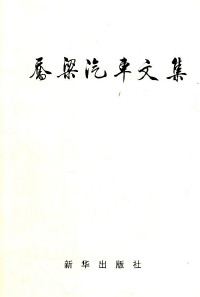 梁汽車文集
新华出版社